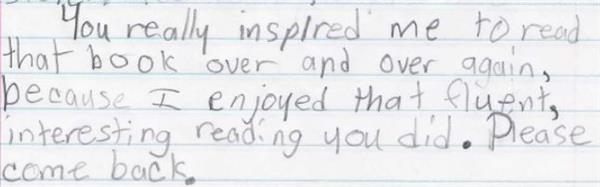 You really inspired me to read
that book over and over again,
because I enjoyed that fluent,
interesting reading you did. Please
come back.